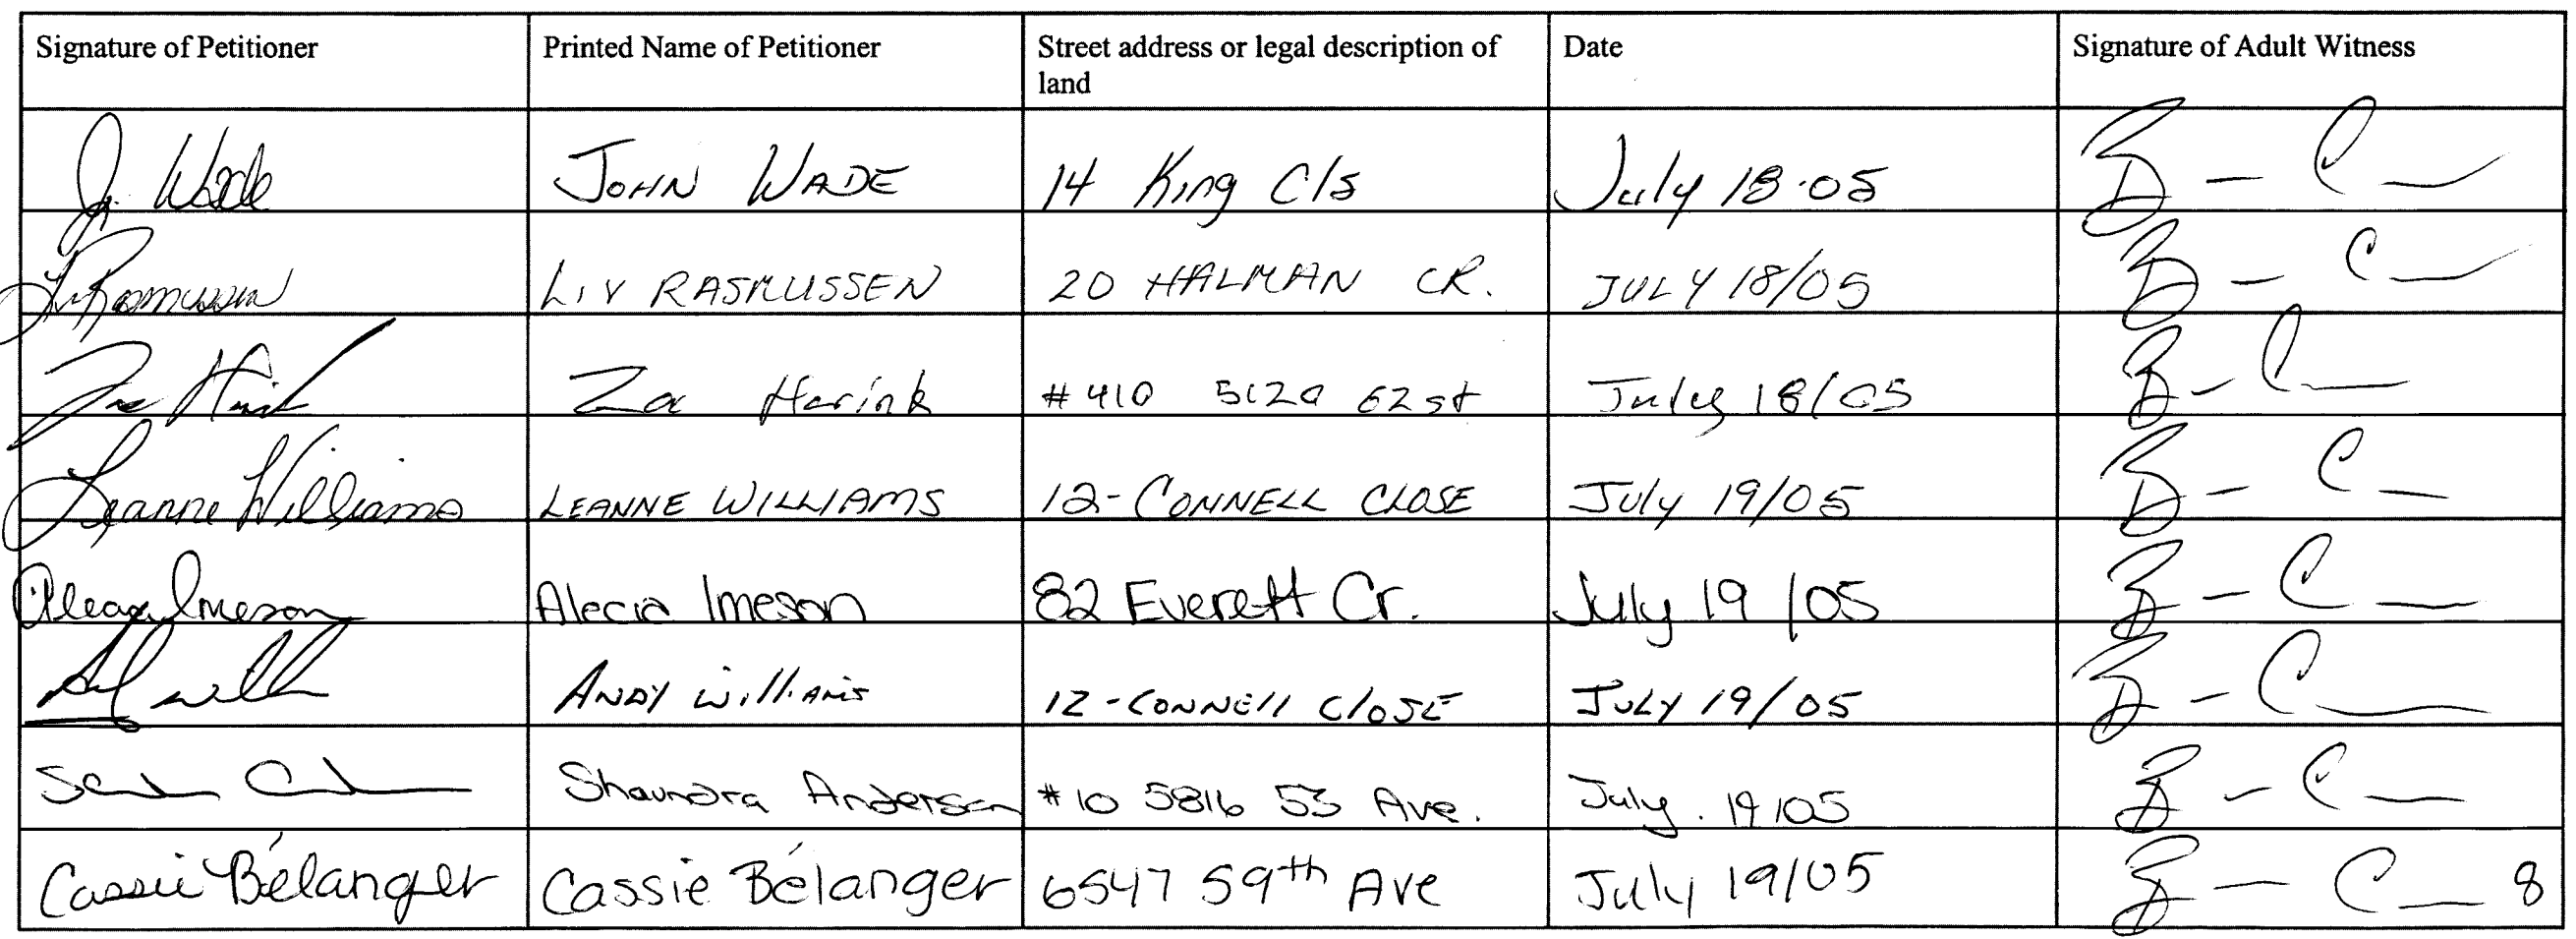 Signature of Petitioner Printed Name of Petitioner Street address or legal description of land Date Signature of Adult Witness
J. Wade JOHN WADE 14 King Cls July 18·05
L Rasmussen LIV RASMUSSEN 20 HALMAN CR. JULY 18/05
Harink #410 5120 62 st July 18/05
Leanne Williams LEANNE WILLIAMS 12-CONNELL CLOSE July 19/05
Alecia Imeson Alecia Imeson 82 Everett Cr. July 19/05
ANDY Williams 12-CONNEll ClOSE JULY 19/05
Shaundra Anderson #10 5816 53 Ave. July. 19/05
Cassie Bélanger Cassie Bélanger 6547 59th Ave July 19/05 8